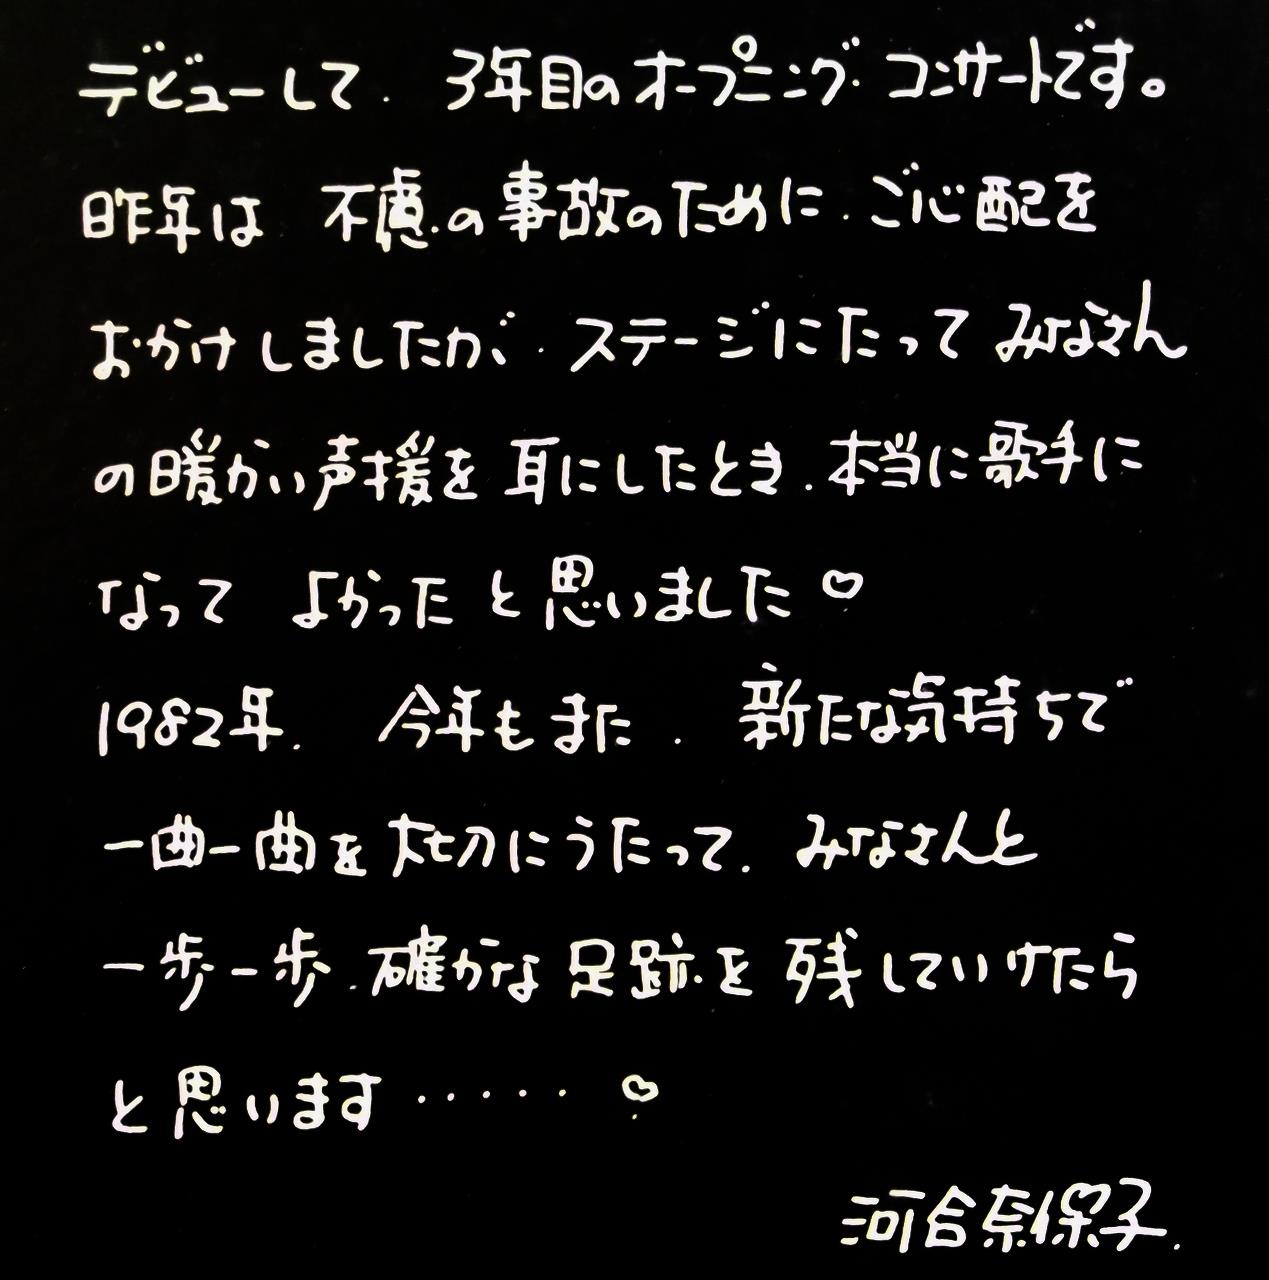 デビューして. 3年目のオープニング.コンサートです。
昨年は 不慮の事故のために.ご心配を
おかけしましたが. ステージにたって みなさん
の暖かい声援を 耳にしたとき.本当に歌手に
なって よかった と思いました♡
1982年. 今年もまた. 新たな気持ちで
一曲一曲を大切にうたって. みなさんと
一歩一歩.確かな 足跡を 残していけたら
と思います・・・・・・ ♡
河合奈保子.